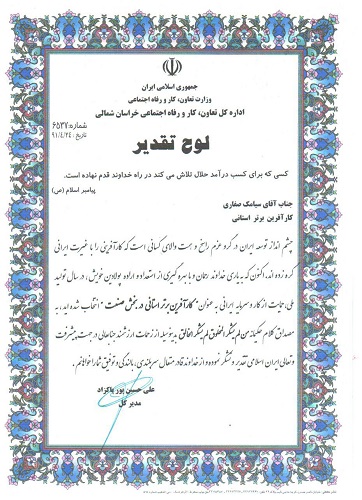 جمهوری اسلامی ایران
وزارت تعاون، کار و رفاه اجتماعی
اداره کل تعاون، کار و رفاه اجتماعی خراسان شمالی
لوح تقدیر
شماره: ۶۵۳۷
تاریخ: ۹۱/۴/۲۴
کسی که برای کسب درآمد حلال تلاش می کند در راه خداوند قدم نهاده است.
پیامبر اسلام (ص)
جناب آقای سیامک صفاری
کارآفرین برتر استانی
چشم انداز توسعه ایران در گرو عزم راسخ و همت والای کسانی است که کارآفرینی را با غیرت ایرانی
گره زده اند، اکنون که به یاری خداوند رحمان و با بهره گیری از استعداد و اراده پولادین خویش، در سال تولید
ملی، حمایت از کار و سرمایه ایرانی به عنوان "کارآفرین برتر استانی در بخش صنعت" انتخاب شده اید، به
مصداق کلام حکیمانه من لم یشکر المخلوق لم یشکر الخالق بدینوسیله از زحمات ارزشمند جنابعالی در جهت پیشرفت
و تعالی ایران اسلامی تقدیر و تشکر نموده و از خداوند قادر متعال سربلندی، بالندگی و توفیق شما را خواهانم.
علی حسین پور پاکزاد
مدیر کل